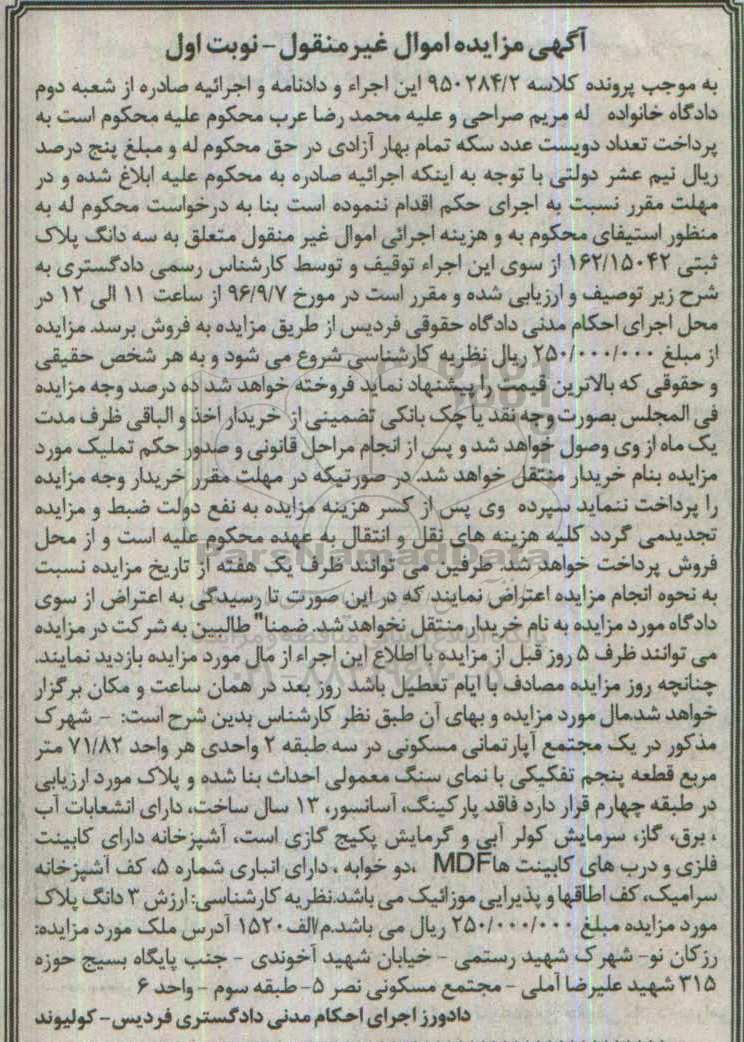 آگهی مزایده اموال غیرمنقول - نوبت اول
به موجب پرونده کلاسه ۹۵۰۲۸۴/۲ این اجراء و دادنامه و اجرائیه صادره از شعبه دوم
دادگاه خانواده له مریم صراحی و علیه محمد رضا عرب محکوم علیه محکوم است به
پرداخت تعداد دویست عدد سکه تمام بهار آزادی در حق محکوم له و مبلغ پنج درصد
ریال نیم عشر دولتی با توجه به اینکه اجرائیه صادره به محکوم علیه ابلاغ شده و در
مهلت مقرر نسبت به اجرای حکم اقدام ننموده است بنا به درخواست محکوم له به
منظور استیفای محکوم به و هزینه اجرائی اموال غیر منقول متعلق به سه دانگ پلاک
ثبتی ۱۶۲/۱۵۰۴۲ از سوی این اجراء توقیف و توسط کارشناس رسمی دادگستری به
شرح زیر توصیف و ارزیابی شده و مقرر است در مورخ ۹۶/۹/۷ از ساعت ۱۱ الی ۱۲ در
محل اجرای احکام مدنی دادگاه حقوقی فردیس از طریق مزایده به فروش برسد. مزایده
از مبلغ ۲۵۰/۰۰۰/۰۰۰ ریال نظریه کارشناسی شروع می شود و به هر شخص حقیقی
و حقوقی که بالاترین قیمت را پیشنهاد نماید فروخته خواهد شد ده درصد وجه مزایده
فی المجلس بصورت وجه نقد یا چک بانکی تضمینی از خریدار اخذ و الباقی ظرف مدت
یک ماه از وی وصول خواهد شد و پس از انجام مراحل قانونی و صدور حکم تملیک مورد
مزایده بنام خریدار منتقل خواهد شد. در صورتیکه در مهلت مقرر خریدار وجه مزایده
را پرداخت ننماید سپرده وی پس از کسر هزینه مزایده به نفع دولت ضبط و مزایده
تجدیدمی گردد کلیه هزینه های نقل و انتقال به عهده محکوم علیه است و از محل
فروش پرداخت خواهد شد. طرفین می توانند ظرف یک هفته از تاریخ مزایده نسبت
به نحوه انجام مزایده اعتراض نمایند که در این صورت تا رسیدگی به اعتراض از سوی
دادگاه مورد مزایده به نام خریدار منتقل نخواهد شد. ضمنا" طالبین به شرکت در مزایده
می توانند ظرف ۵ روز قبل از مزایده با اطلاع این اجراء از مال مورد مزایده بازدید نمایند.
چنانچه روز مزایده مصادف با ایام تعطیل باشد روز بعد در همان ساعت و مکان برگزار
خواهد شد.مال مورد مزایده و بهای آن طبق نظر کارشناس بدین شرح است: - شهرک
مذکور در یک مجتمع آپارتمانی مسکونی در سه طبقه ۲ واحدی هر واحد ۷۱/۸۲ متر
مربع قطعه پنجم تفکیکی با نمای سنگ معمولی احداث بنا شده و پلاک مورد ارزیابی
در طبقه چهارم قرار دارد فاقد پارکینگ، آسانسور، ۱۳ سال ساخت، دارای انشعابات آب
، برق، گاز، سرمایش کولر آبی و گرمایش پکیج گازی است، آشپزخانه دارای کابینت
فلزی و درب های کابینت هاMDF ،دو خوابه ، دارای انباری شماره ۵، کف آشپزخانه
سرامیک، کف اطاقها و پذیرایی موزائیک می باشد.نظریه کارشناسی: ارزش ۳ دانگ پلاک
مورد مزایده مبلغ ۲۵۰/۰۰۰/۰۰۰ ریال می باشد.م/الف۱۵۲۰ آدرس ملک مورد مزایده:
رزکان نو- شهرک شهید رستمی - خیابان شهید آخوندی - جنب پایگاه بسیج حوزه
۳۱۵ شهید علیرضا آملی - مجتمع مسکونی نصر ۵- طبقه سوم - واحد ۶
دادورز اجرای احکام مدنی دادگستری فردیس- کولیوند
ParsNamadData